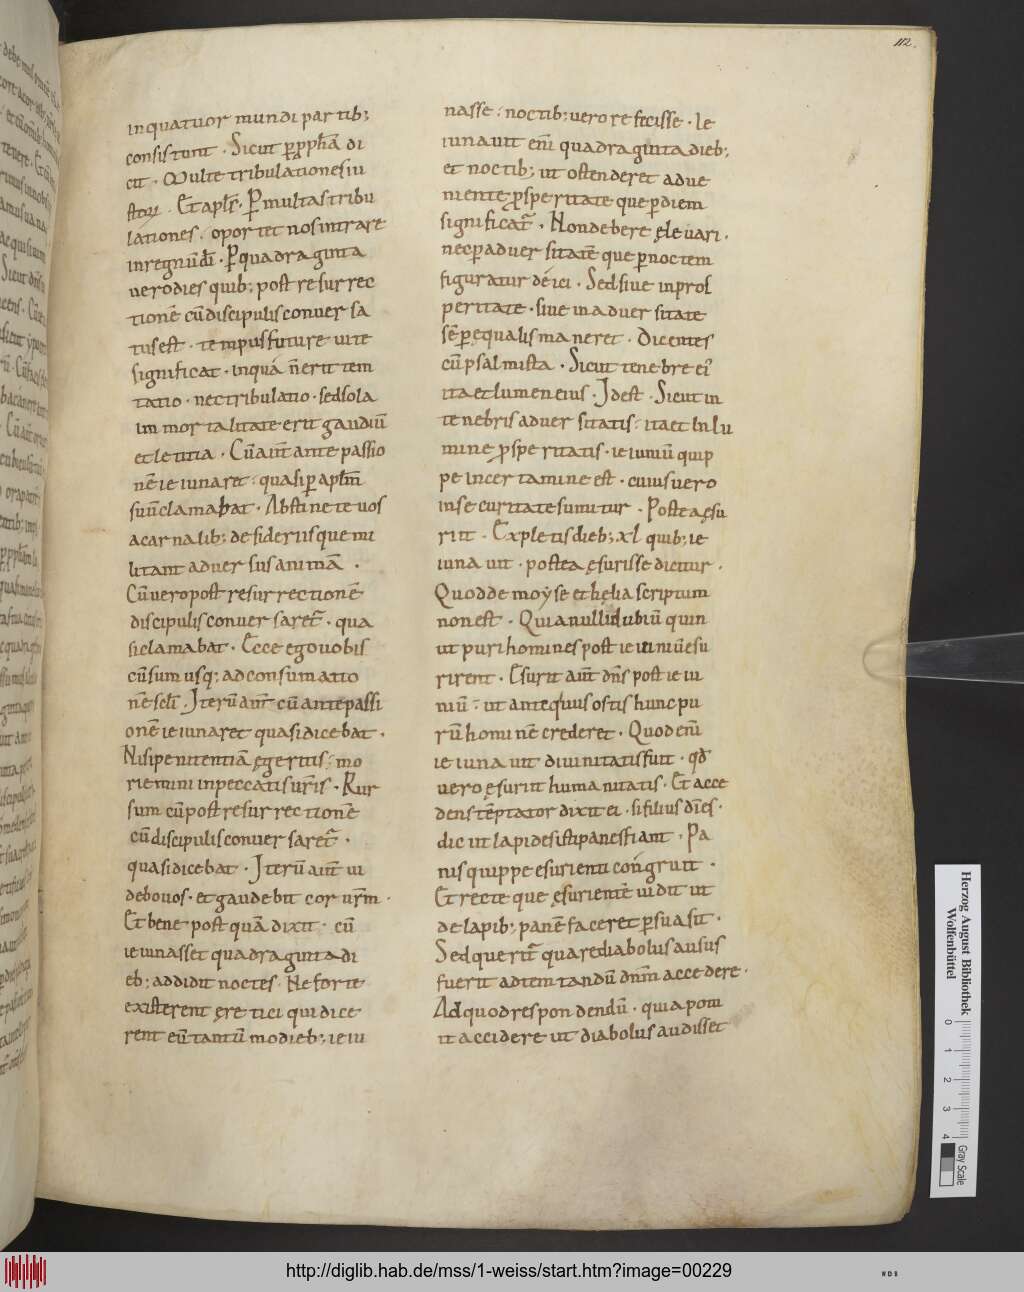 112.
inquatuor mundi partib;
consistunt . Sicut ꝑꝓph&am di
cit . Multe tribulationes iu
storũ . Et apłs . Ꝑ multas tribu
lationes . oportet nos intrare
in regnũ dī . Ꝑ quadraginta
uero dies quib; post resurrec
tionē cũ discipulis conuersa
tus est . tempus future uite
significat . in qua ñ erit tem
tatio . nec tribulatio . sed sola
immortalitate erit gaudiũ
et letitia . Cũ aũt ante passio
nē ieiunaret . quasi ꝑ apłm
suũ clamabat . Abstinete uos
a carnalib; desideriis que mi
litant aduersus animã .
Cũ uero post resurrectionē
discipulis conuersaret̃ . qua
si clamabat . Ecce ego uobis
cũ sum usq; ad consumatio
nē scłi . Iterũ aũt cũ ante passi
onē ieiunaret quasi dicebat .
Nisi penitentiã ęgeritis : mo
riemini in peccatis uris . Rur
sum cũ post resurrectionē
cũ discipulis conuersaret̃ .
quasi dicebat . Iterũ aũt ui
debo uos . et gaudebit cor urm .
Et bene postquã dixit . cũ
ieiunasset quadraginta di
eb; addidit noctes . Ne forte
existerent ęretici qui dice
rent eũ tantũ modieb; ieiu
nasse : noctib; uero refecisse . Ie
iunauit enī quadraginta dieb;
et noctib; ut ostenderet adue
niente ꝓsperitate que ꝑ diem
significat̃ . Non debere ęleuari .
nec ꝑ aduersitatē que ꝑ noctem
figuratur deici . Sed siue in pros
peritate . siue in aduersitate
sēꝑ equalis maneret . Dicentes
cũ psalmista . Sicut tenebre ei'
ita et lumen eius . Id est . Sicut in
tenebris aduersitatis : ita et in lu
mine ꝓsperitatis . ieiuniũ quip
pe incertamine est . cuius uero
in securitate sumitur . Postea ęsu
riit . Expletis dieb; xl quib; ie
iunauit . postea ęsurisse dicitur .
Quod de moyse et helia scriptum
non est . Quia nulli dubiũ quin
ut puri homines post ieiuniũ esu
rirent . Esuriit aũt dñs post ieiu
niũ : ut antequus ostis hunc pu
rũ hominē crederet . Quod enī
ieiunauit diuinitatis fuit . qđ
uero ęsuriit humanitatis . Et acce
dens tēptator dixit ei . si filius dī es .
dic ut lapides isti panes fiant . Pa
nis quippe esurienti congruit .
Et recte que ęsurientē uidit ut
de lapib; panē faceret ꝑsuasit .
Sed querit̃ quare diabolus ausus
fuerit ad temtandũ dñm accedere .
Ad quod respondendũ . quia potu
it accidere ut diabolus audisset
Herzog August Bibliothek
Wolfenbüttel
0 1 2 3 4
Gray Scale
http://diglib.hab.de/mss/1-weiss/start.htm?image=00229